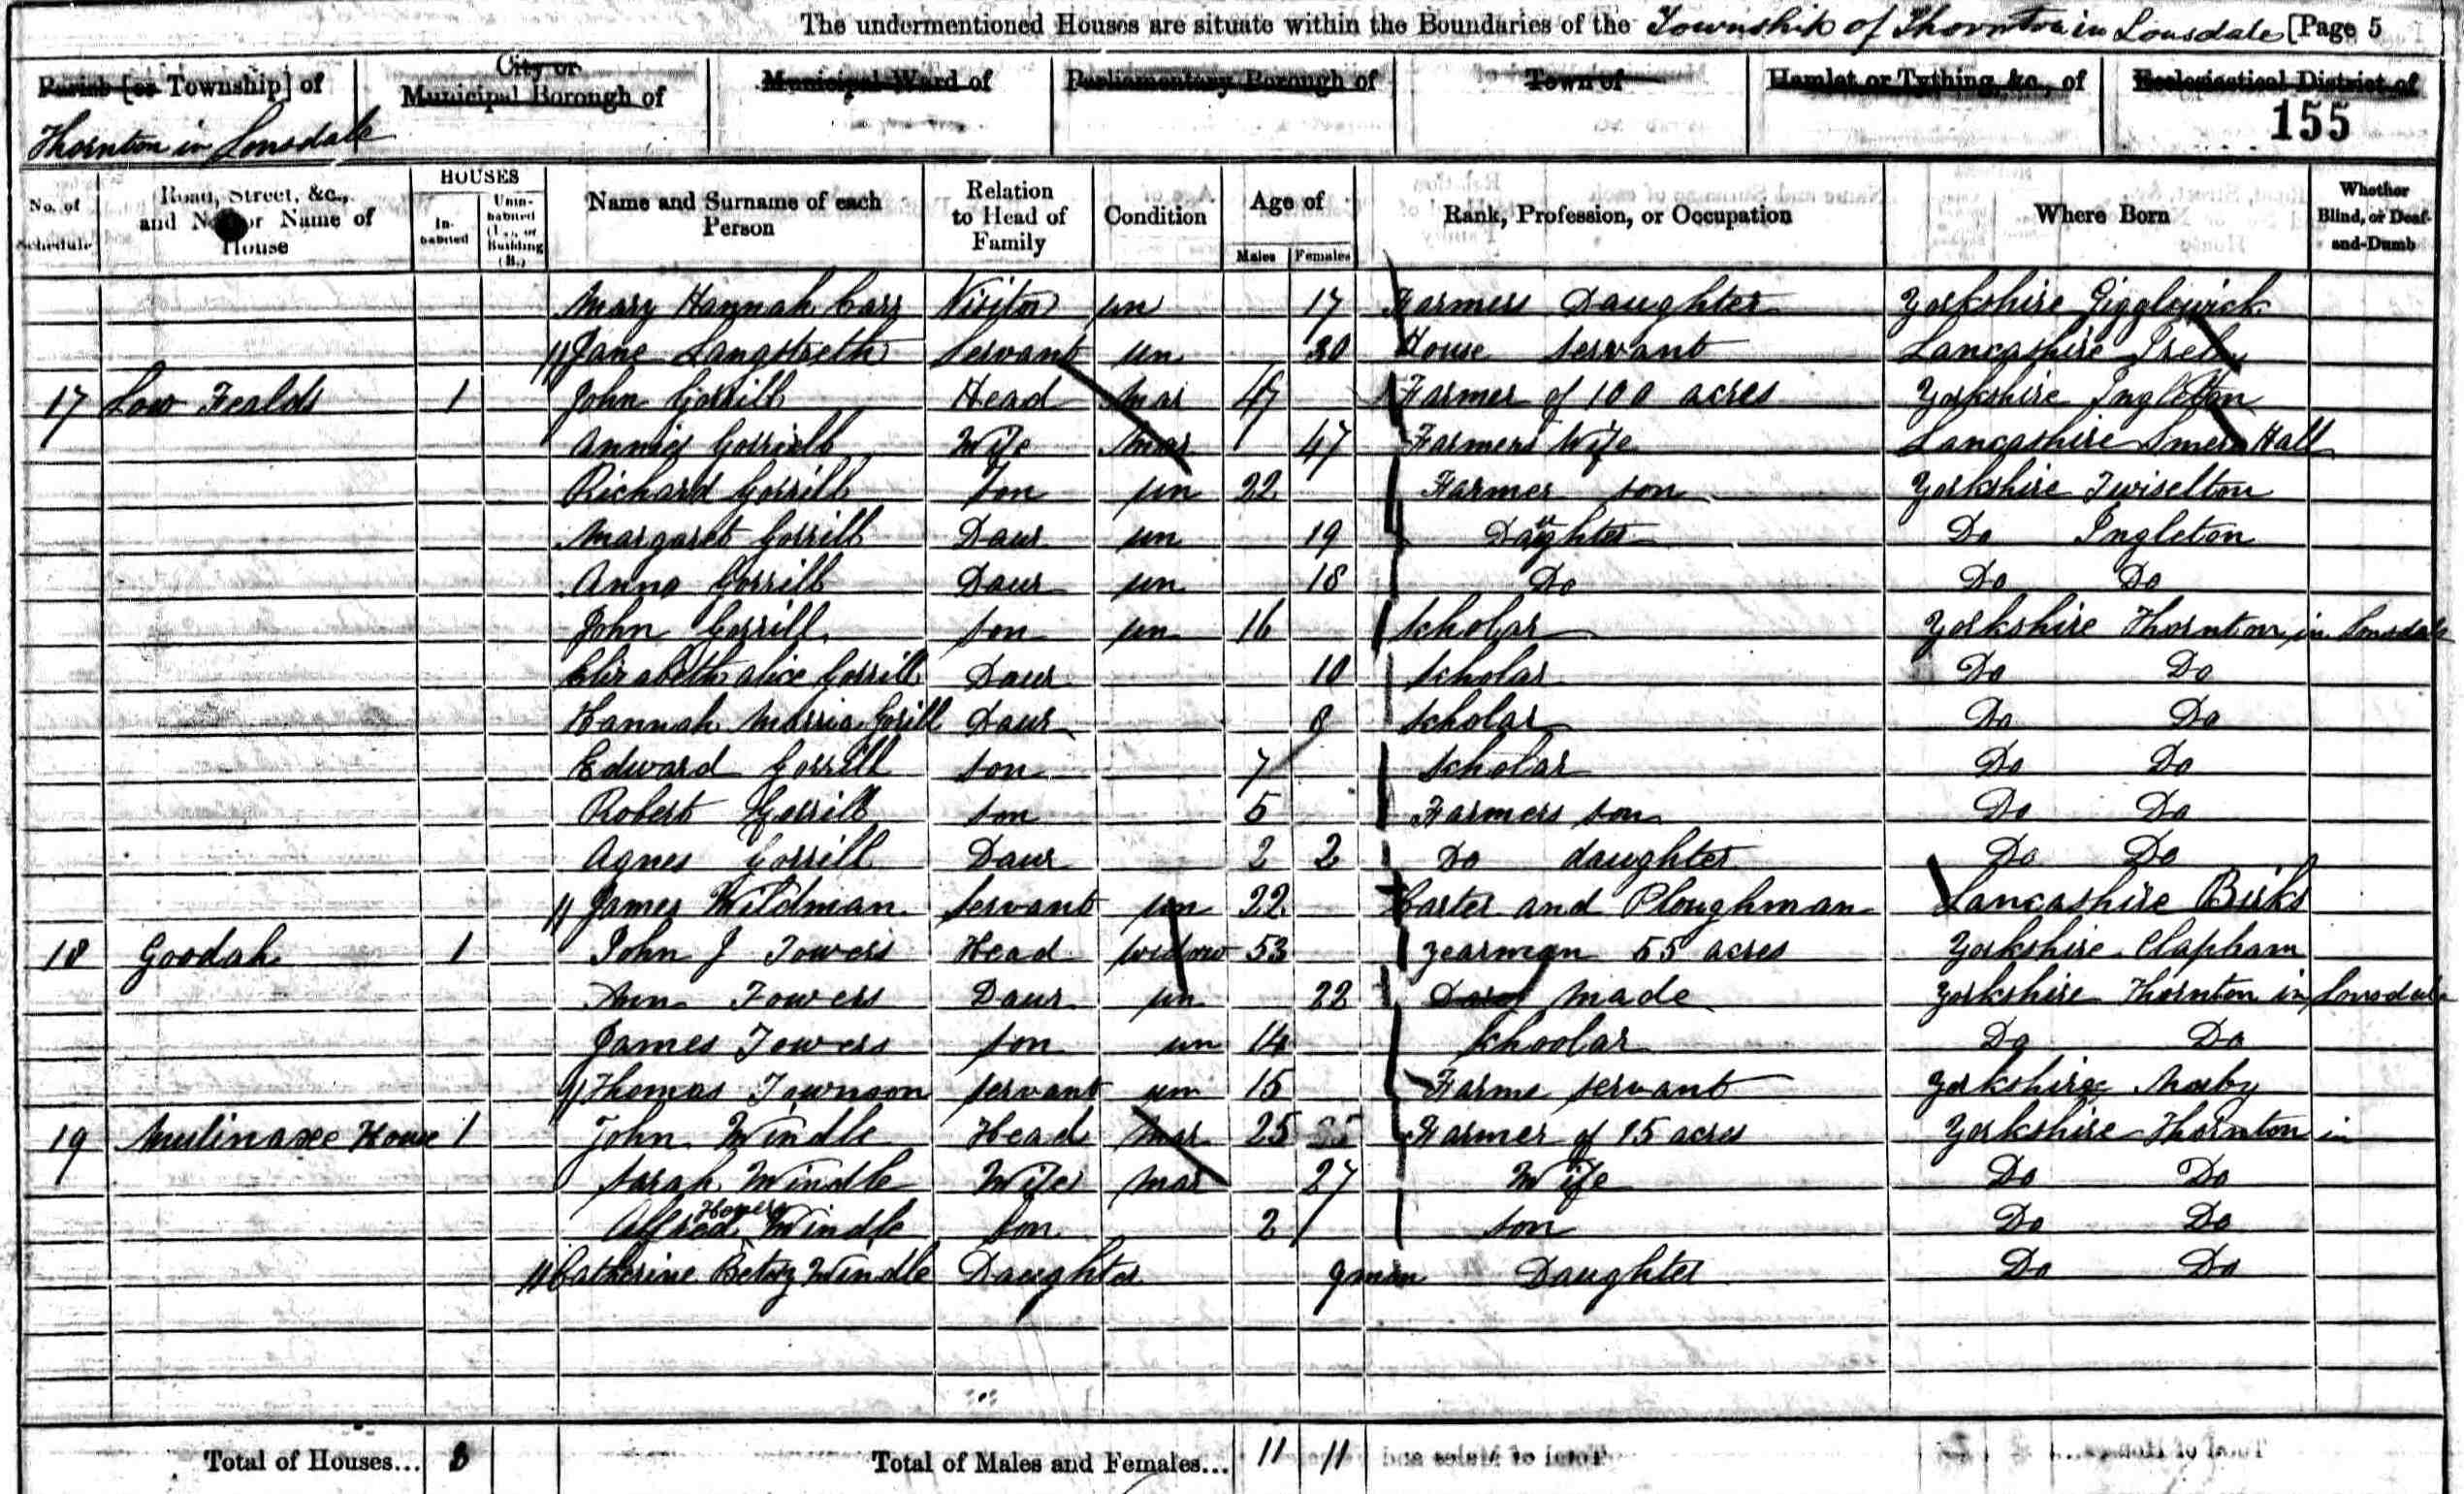 The undermentioned Houses are situate within the Boundaries of the Township of Thornton in Lonsdale [Page 5
Parish [or Township] of City or Municipal Borough of Municipal Ward of Parliamentary Borough of Town of Hamlet or Tything, &c., of Ecclesiastical District of
Thornton in Lonsdale 155
No. of Schedule Road, Street, &c., and No. or Name of House HOUSES Inhabited Uninhabited (U.), or Building (B.) Name and Surname of each Person Relation to Head of Family Condition Age of Males Females Rank, Profession, or Occupation Where Born Whether Blind, or Deaf-and-Dumb
Mary Hannah Carr Visitor un 17 Farmers Daughter Yorkshire Giggleswick
Jane Langstreth Servant un 30 House Servant Lancashire Ireby
17 Low Fealds 1 John Gorrill Head mar 47 Farmer of 100 acres Yorkshire Ingleton
Annie Gorrill Wife mar 47 Farmers Wife Lancashire Hall
Richard Gorrill Son un 22 Farmer son Yorkshire Twiselton
Margaret Gorrill Daur un 19 Daughter Do Ingleton
Anna Gorrill Daur un 18 Do Do Do
John Gorrill Son un 16 Scholar Yorkshire Thornton in Lonsdale
Elizabeth alice Gorrill Daur 10 Scholar Do Do
Hannah Marria Gorill Daur 8 Scholar Do Do
Edward Gorrill Son 7 Scholar Do Do
Robert Gorrill Son 5 Farmers son Do Do
Agnes Gorrill Daur 2 2 Do daughter Do Do
James Wildman Servant un 22 Carter and Ploughman Lancashire Burks
18 Goodah 1 John J Towers Head widow 53 yearman 55 acres Yorkshire Clapham
Ann Towers Daur un 22 made Yorkshire Thornton in Lonsdale
James Towers Son un 14 Schoolar Do Do
Thomas Townson Servant un 15 Farme Servant Yorkshire
19 House 1 John Windle Head mar 25 25 Farmer of 15 acres Yorkshire Thornton in
Sarah Windle Wife mar 27 Wife Do Do
Alfred Windle Son 2 Son Do Do
Catherine Betsy Windle Daughter 9 mon Daughter Do Do
Total of Houses... 3 Total of Males and Females... 11 11